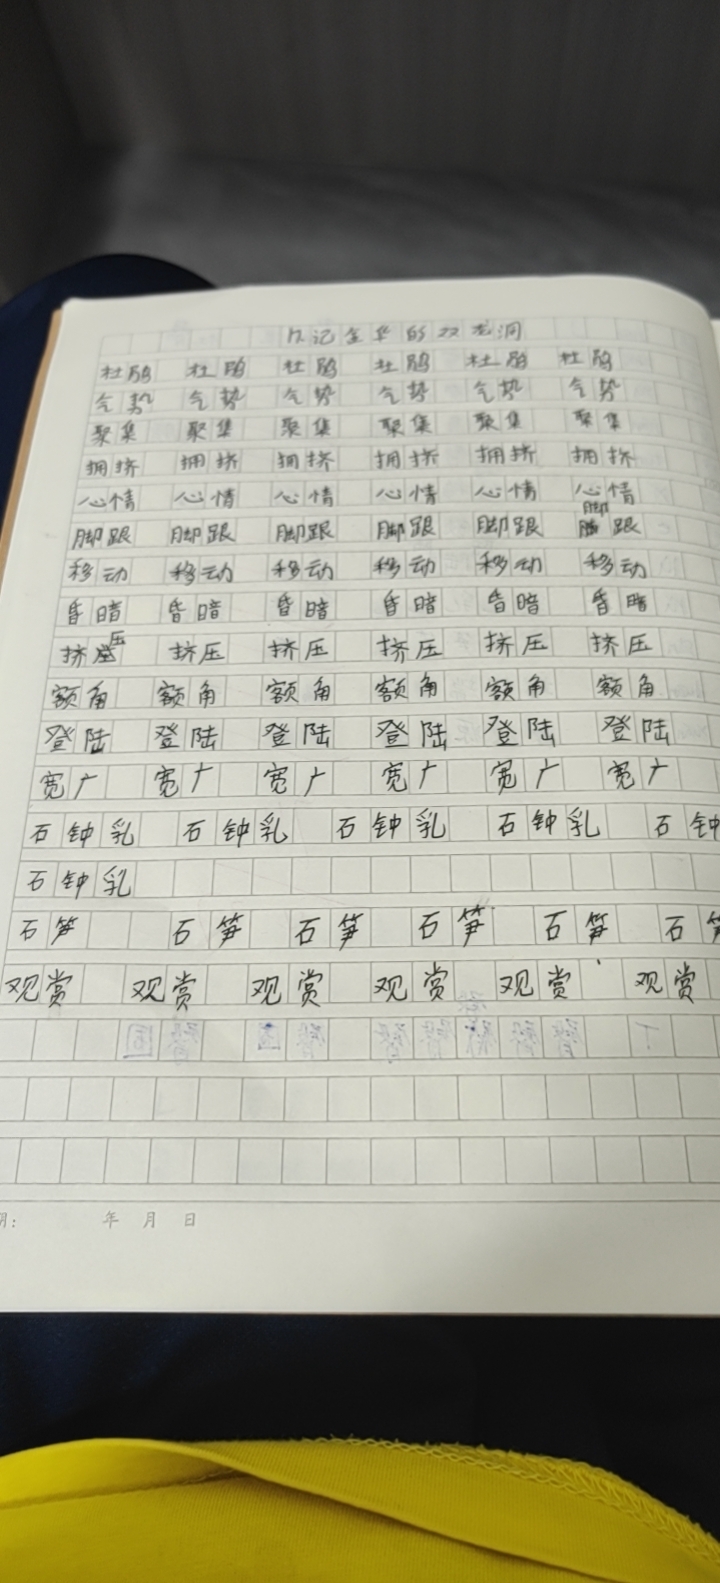 17.记金华的双龙洞
杜鹃 杜鹃 杜鹃 杜鹃 杜鹃 杜鹃
气势 气势 气势 气势 气势 气势
聚集 聚集 聚集 聚集 聚集 聚集
拥挤 拥挤 拥挤 拥挤 拥挤 拥挤
心情 心情 心情 心情 心情 心情
脚跟 脚跟 脚跟 脚跟 脚跟 脚跟
移动 移动 移动 移动 移动 移动
昏暗 昏暗 昏暗 昏暗 昏暗 昏暗
挤压 挤压 挤压 挤压 挤压 挤压
额角 额角 额角 额角 额角 额角
登陆 登陆 登陆 登陆 登陆 登陆
宽广 宽广 宽广 宽广 宽广 宽广
石钟乳 石钟乳 石钟乳 石钟乳 石钟
石钟乳
石笋 石笋 石笋 石笋 石笋 石笋
观赏 观赏 观赏 观赏 观赏 观赏
期： 年 月 日